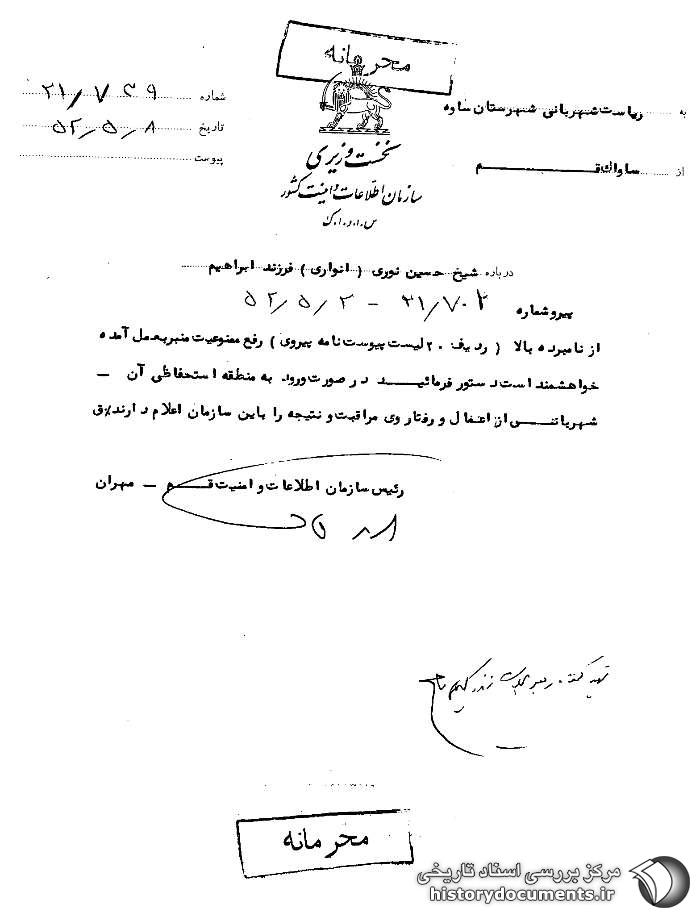 محرمانه
به ریاست شهربانی شهرستان ساوه
از ساواک قم
شماره ۲۱/۷۳۹
تاریخ ۵۲/۵/۸
پیوست
نخست وزیری
سازمان اطلاعات و امنیت کشور
س.ا.و.ا.ک
درباره شیخ حسین نوری (انواری) فرزند ابراهیم
پیرو شماره ۲۱/۷۰۲ – ۵۲/۵/۲
از نامبرده بالا (ردیف ۲۰ لیست پیوست نامه پیروی) رفع ممنوعیت منبر بعمل آمده
خواهشمند است دستور فرمائید در صورت ورود به منطقه استحفاظی آن –
شهربانی از اعمال و رفتار وی مراقبت و نتیجه را باین سازمان اعلام دارند
رئیس سازمان اطلاعات و امنیت قم – مهران
محرمانه
مرکز بررسی اسناد تاریخی
historydocuments.ir